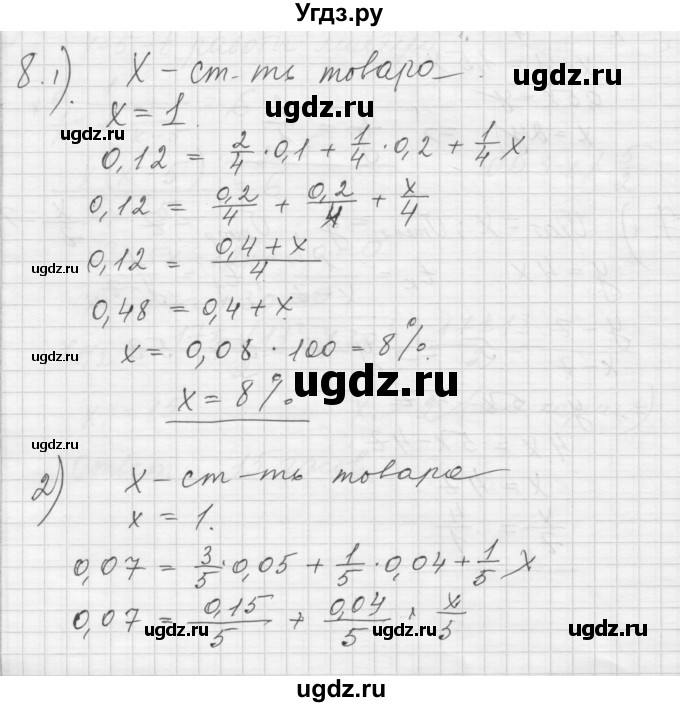 Угдз.ру
8.1) X – ст-ть товара.
ugdz.ru
x = 1. ugdz.ru
0,12 = 2/4 · 0,1 + 1/4 · 0,2 + 1/4 X
0,12 = 0,2/4 + 0,2/4 + x/4
ugdz.ru ugdz.ru
0,12 = (0,4 + x)/4
ugdz.ru ugdz.ru
0,48 = 0,4 + x
x = 0,08 · 100 = 8%.
ugdz.ru
x = 8%. ugdz.ru
ugdz.ru
2) X – ст-ть товара
x = 1.
0,07 = 3/5 · 0,05 + 1/5 · 0,04 + 1/5 X
0,07 = 0,15/5 + 0,04/5 + x/5
ugdz.ru ugdz.ru ugdz.ru
ugdz.ru